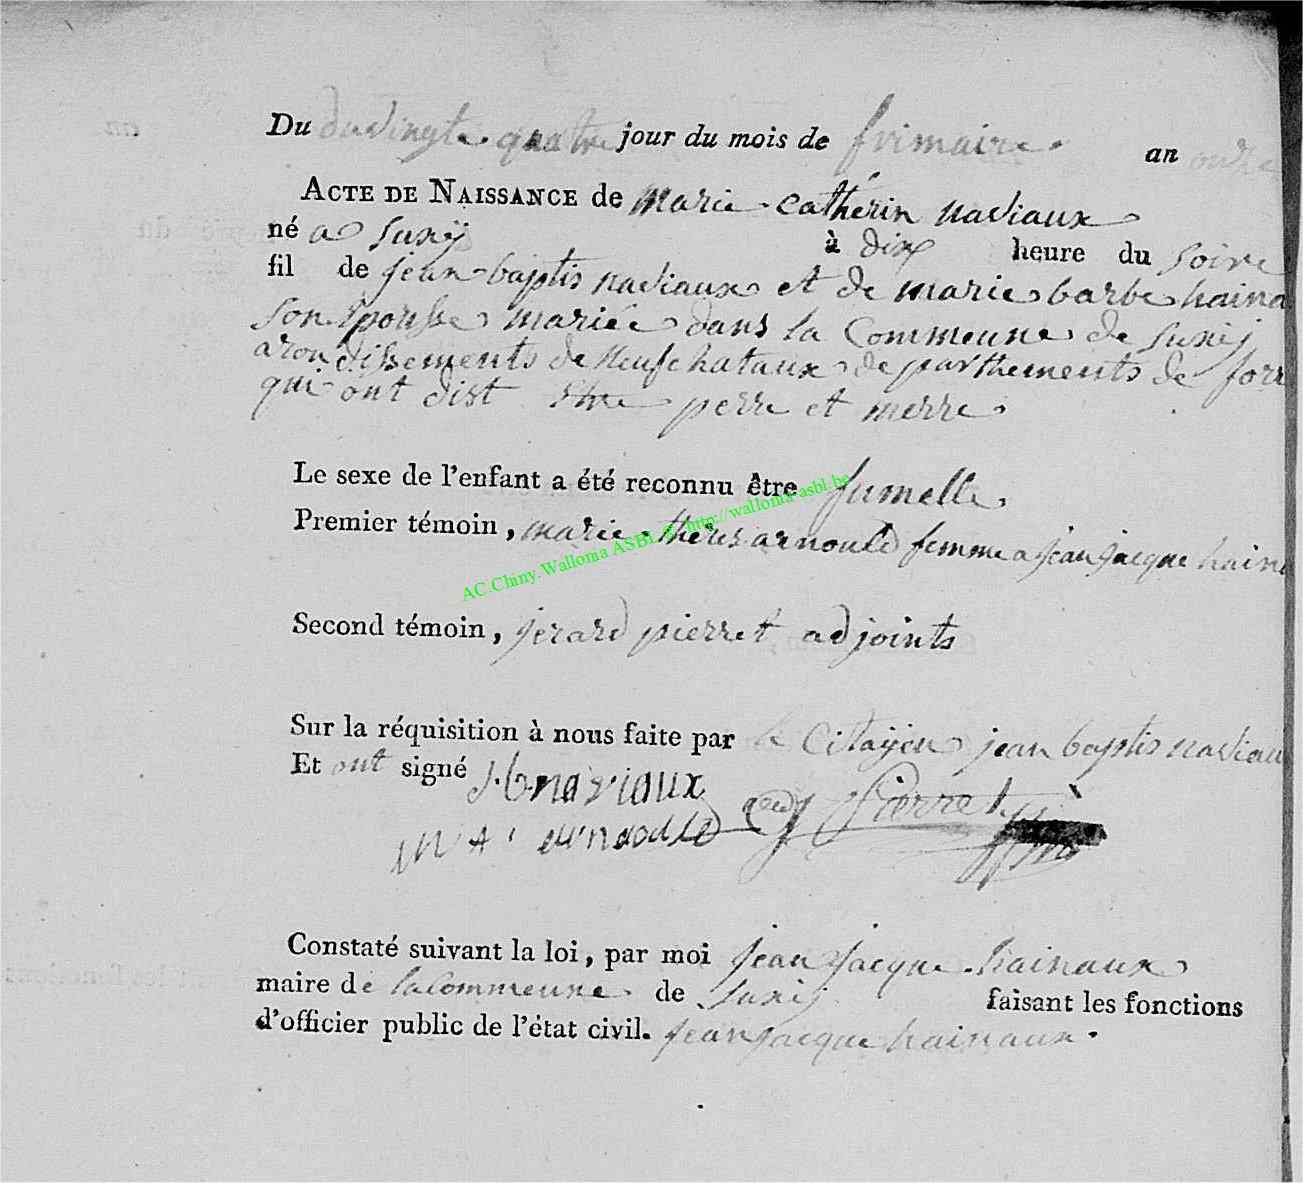 Du du vingte quatre jour du mois de frimaire an onze
ACTE DE NAISSANCE de marie catherin naviaux
né a Suxÿ à dix heure du soire
fil de jean baptis naviaux et de marie barbe haina
son Epousse mariée dans la Commeune de Suxij
arondissements de neufchataux de parthements de forr
qui ont dist Etre perre et merre
Le sexe de l'enfant a été reconnu être fumelle
Premier témoin, marie theres arnould femme a jean jacque hain
AC.Chiny.Walloma ASBL © http://walloma-asbl.be
Second témoin, jerard pierret adjoints
Sur la réquisition à nous faite par le Citayen jean baptis naviau
Et ont signé J.b naviaux
Pierret
arnoould
Constaté suivant la loi, par moi jean jacque hainaux
maire de la Commeune de Suxij faisant les fonctions
d'officier public de l'état civil. jean jacque hainaux.